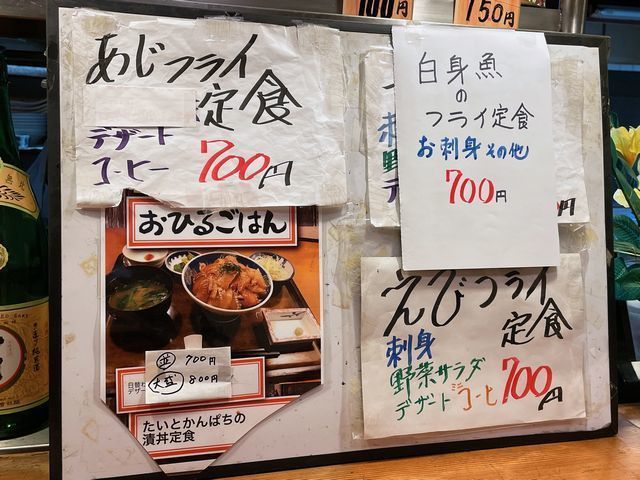 100円
150円
あじフライ
定食
デザート
コーヒー
700円
白身魚
の
フライ定食
お刺身 その他
700円
おひるごはん
並 700円
大盛 800円
日替わ
デザー
たいとかんぱちの
漬丼定食
刺
野
デ
円
えびフライ
定食
刺身
野菜サラダ
デザート ミニコーヒ
700円